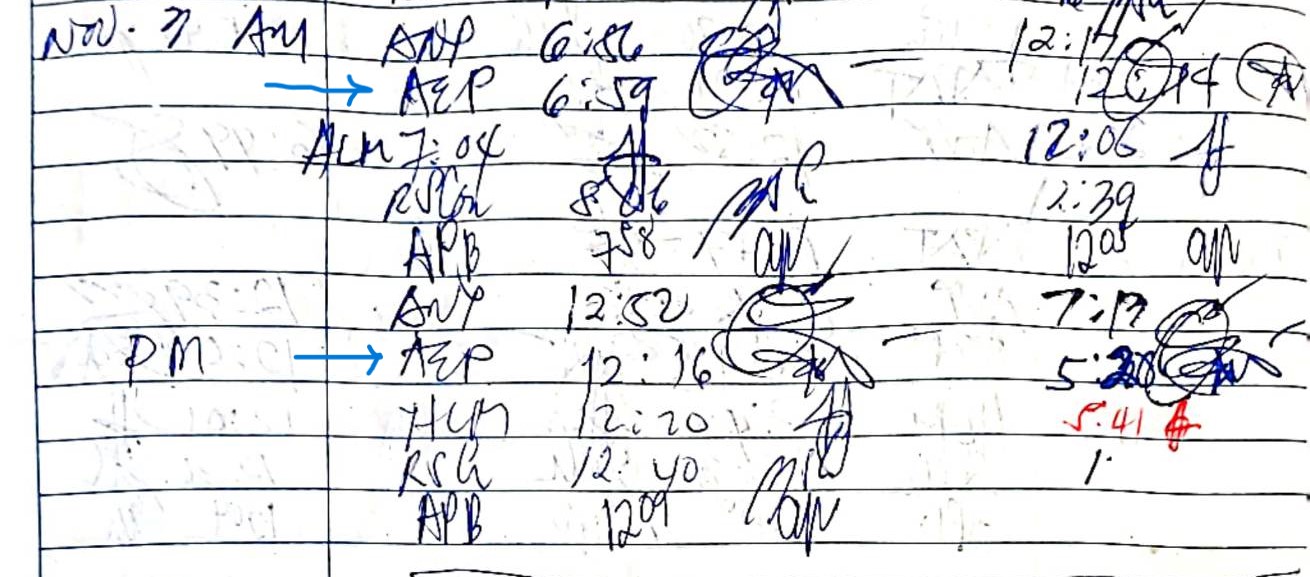 Nov. 3 AM ANP 6:56 12:17
AEP 6:59 12:14
ALM 7:04 12:06
RSGn 8:06 12:39
APB 7 58 12 05 ap
ANP 12:52 7:17
PM AEP 12:16 5:20
12:20 5:41
RSG 12:40 1:
APB 12 09 ap